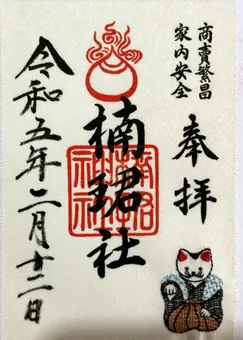 商売繁昌
家内安全
奉拝
楠珺社
令和五年二月十二日